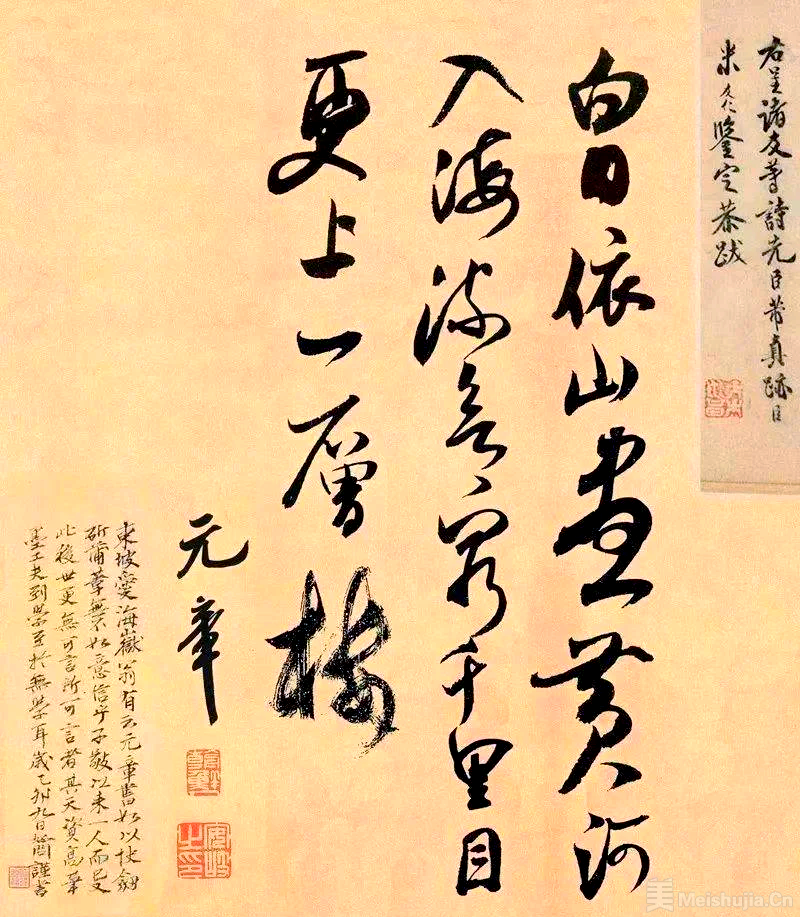 右呈諸友等詩先臣芾真跡臣
米友仁鑒定恭跋
白日依山盡黃河
入海流欲窮千里目
更上一層樓
元章
東坡愛海嶽翁有云元章書如以快劍
斫蒲葦無不如意信乎子敬以來一人而已
此後世更無可言所可言者其天資高筆
墨工夫到學至於無學耳歲乙卯九日謹書
美 Meishujia.Cn